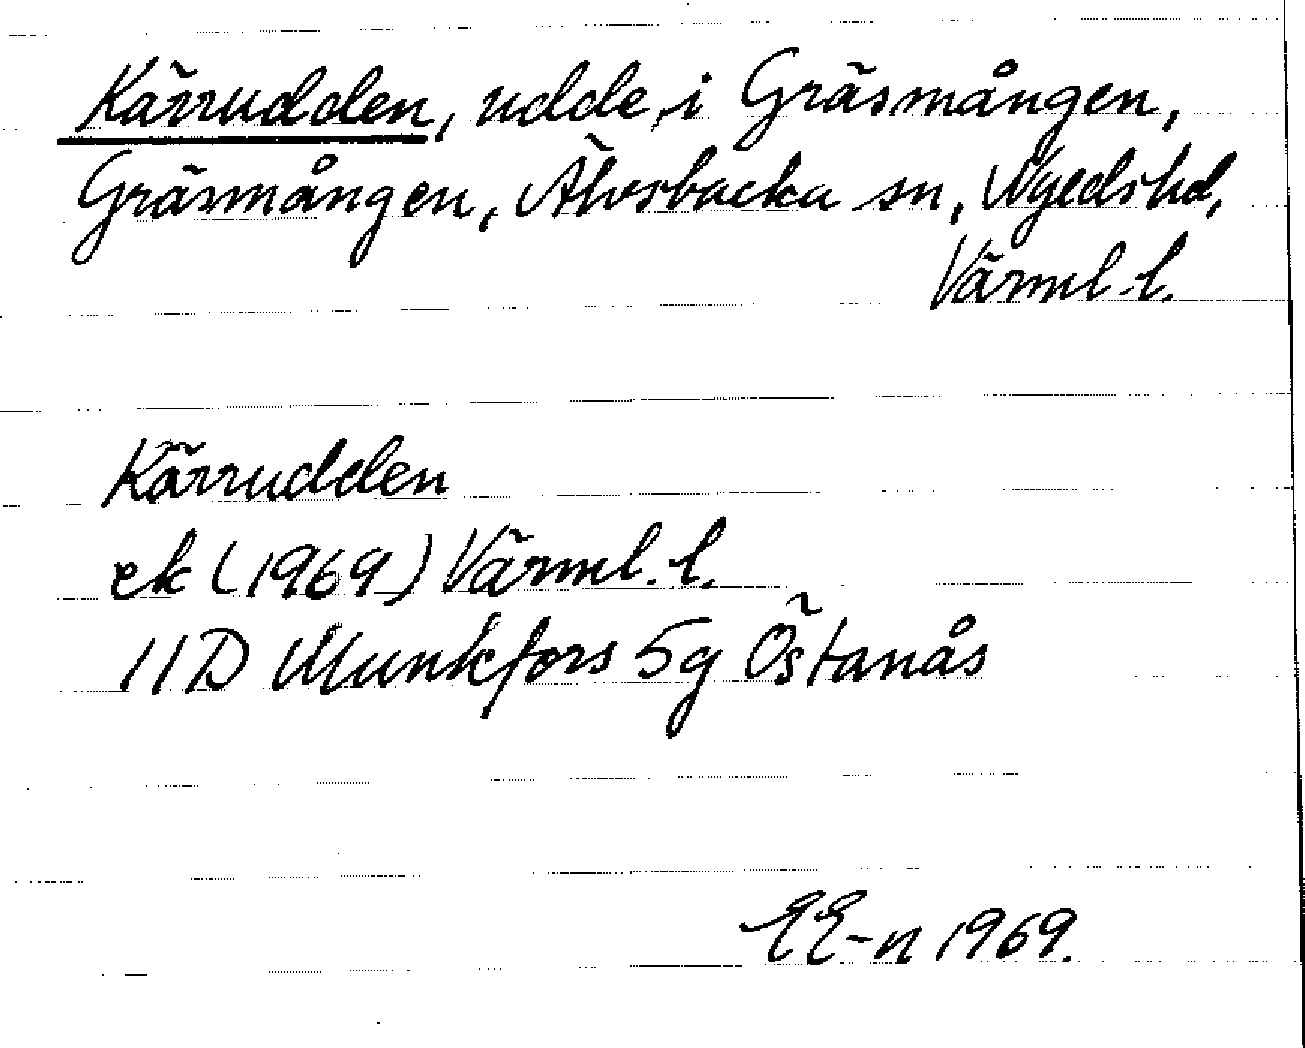 Kärrudden, udde, i Gräsmången,
Gräsmången, Älvsbacka sn, Nyeds hd,
Värml. l.
Kärrudden
ek (1969) Värml. l.
11D Munkfors 5g Östanås
EE-n 1969.